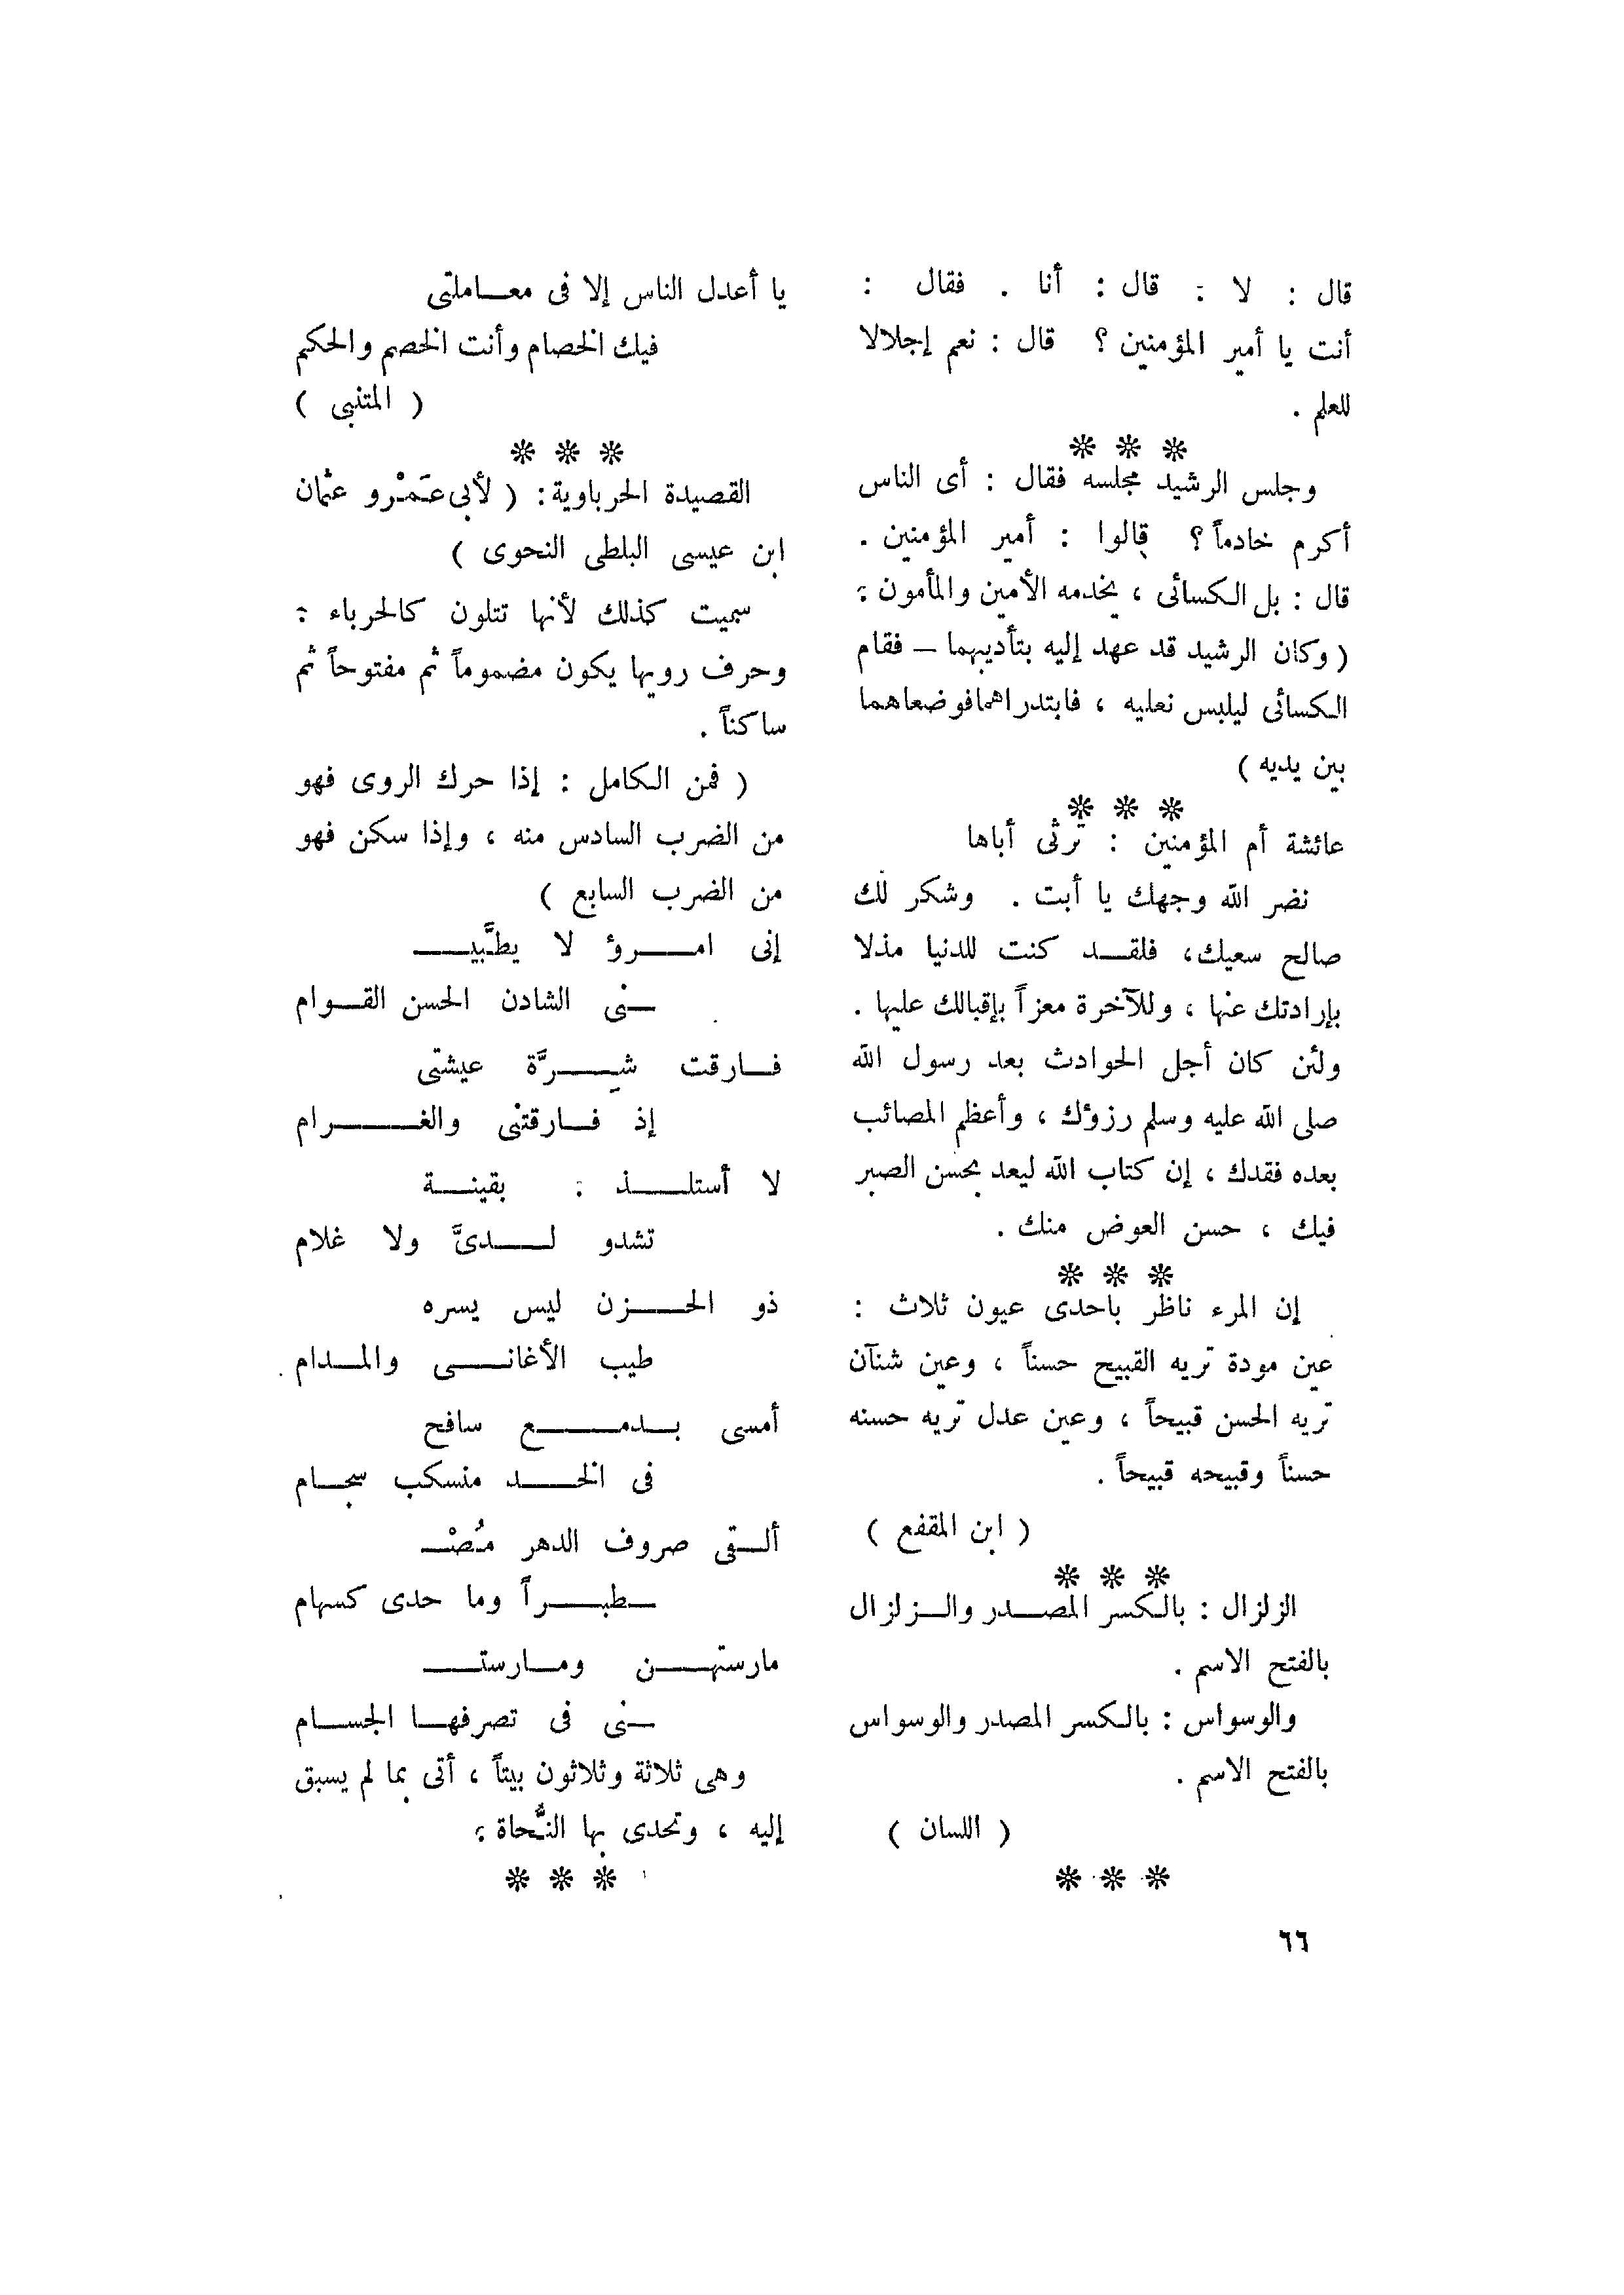 قال : لا . قال : أنا . فقال :
أنت يا أمير المؤمنين ؟ قال : نعم إجلالا
للعلم .
* * *
وجلس الرشيد مجلسه فقال : أى الناس
أكرم خادماً ؟ قالوا : أمير المؤمنين .
قال : بل الكسائى ، يخدمه الأمين والمأمون .
( وكان الرشيد قد عهد إليه بتأديبهما – فقام
الكسائى ليلبس نعليه ، فابتدراهما فوضعاهما
بين يديه )
* * *
عائشة أم المؤمنين : ترثى أباها
نضر الله وجهك يا أبت . وشكر لك
صالح سعيك، فلقد كنت للدنيا مذلا
بإرادتك عنها ، وللآخرة معزاً بإقبالك عليها .
ولئن كان أجل الحوادث بعد رسول الله
صلى الله عليه وسلم رزؤك ، وأعظم المصائب
بعده فقدك ، إن كتاب الله ليعد بحسن الصبر
فيك ، حسن العوض منك .
* * *
إن المرء ناظر باحدى عيون ثلاث :
عين مودة تريه القبيح حسناً ، وعين شنآن
تريه الحسن قبيحاً ، وعين عدل تريه حسنه
حسناً وقبيحه قبيحاً .
( ابن المقفع )
* * *
الزلزال : بالكسر المصدر والزلزال
بالفتح الاسم .
والوسواس : بالكسر المصدر والوسواس
بالفتح الاسم .
( اللسان )
* * *
يا أعدل الناس إلا فى معاملتى
فيك الخصام وأنت الخصم والحكم
( المتنبى )
* * *
القصيدة الحرباوية : ( لأبى عَمْرو عثمان
ابن عيسى البلطى النحوى )
سميت كذلك لأنها تتلون كالحرباء :
وحرف رويها يكون مضموماً ثم مفتوحاً ثم
ساكناً .
( فمن الكامل : إذا حرك الروى فهو
من الضرب السادس منه ، وإذا سكن فهو
من الضرب السابع )
إنى امـرؤ لا يطَّبيـ
ـنى الشادن الحسن القوام
فارقت شِرَّة عيشتى
إذ فارقتنى والغرام
لا أستلذ : بقينة
تشدو لدىَّ ولا غلام
ذو الحزن ليس يسره
طيب الأغانى والمدام
أمسى بدمع سافح
فى الخد منسكب سجام
ألقى صروف الدهر مُصْـ
ـطبراً وما حدى كسهام
مارستهن ومارستـ
ـنى فى تصرفها الجسام
وهى ثلاثة وثلاثون بيتاً ، أتى بما لم يسبق
إليه ، وتحدى بها النُّحاة .
* * *
٦٦